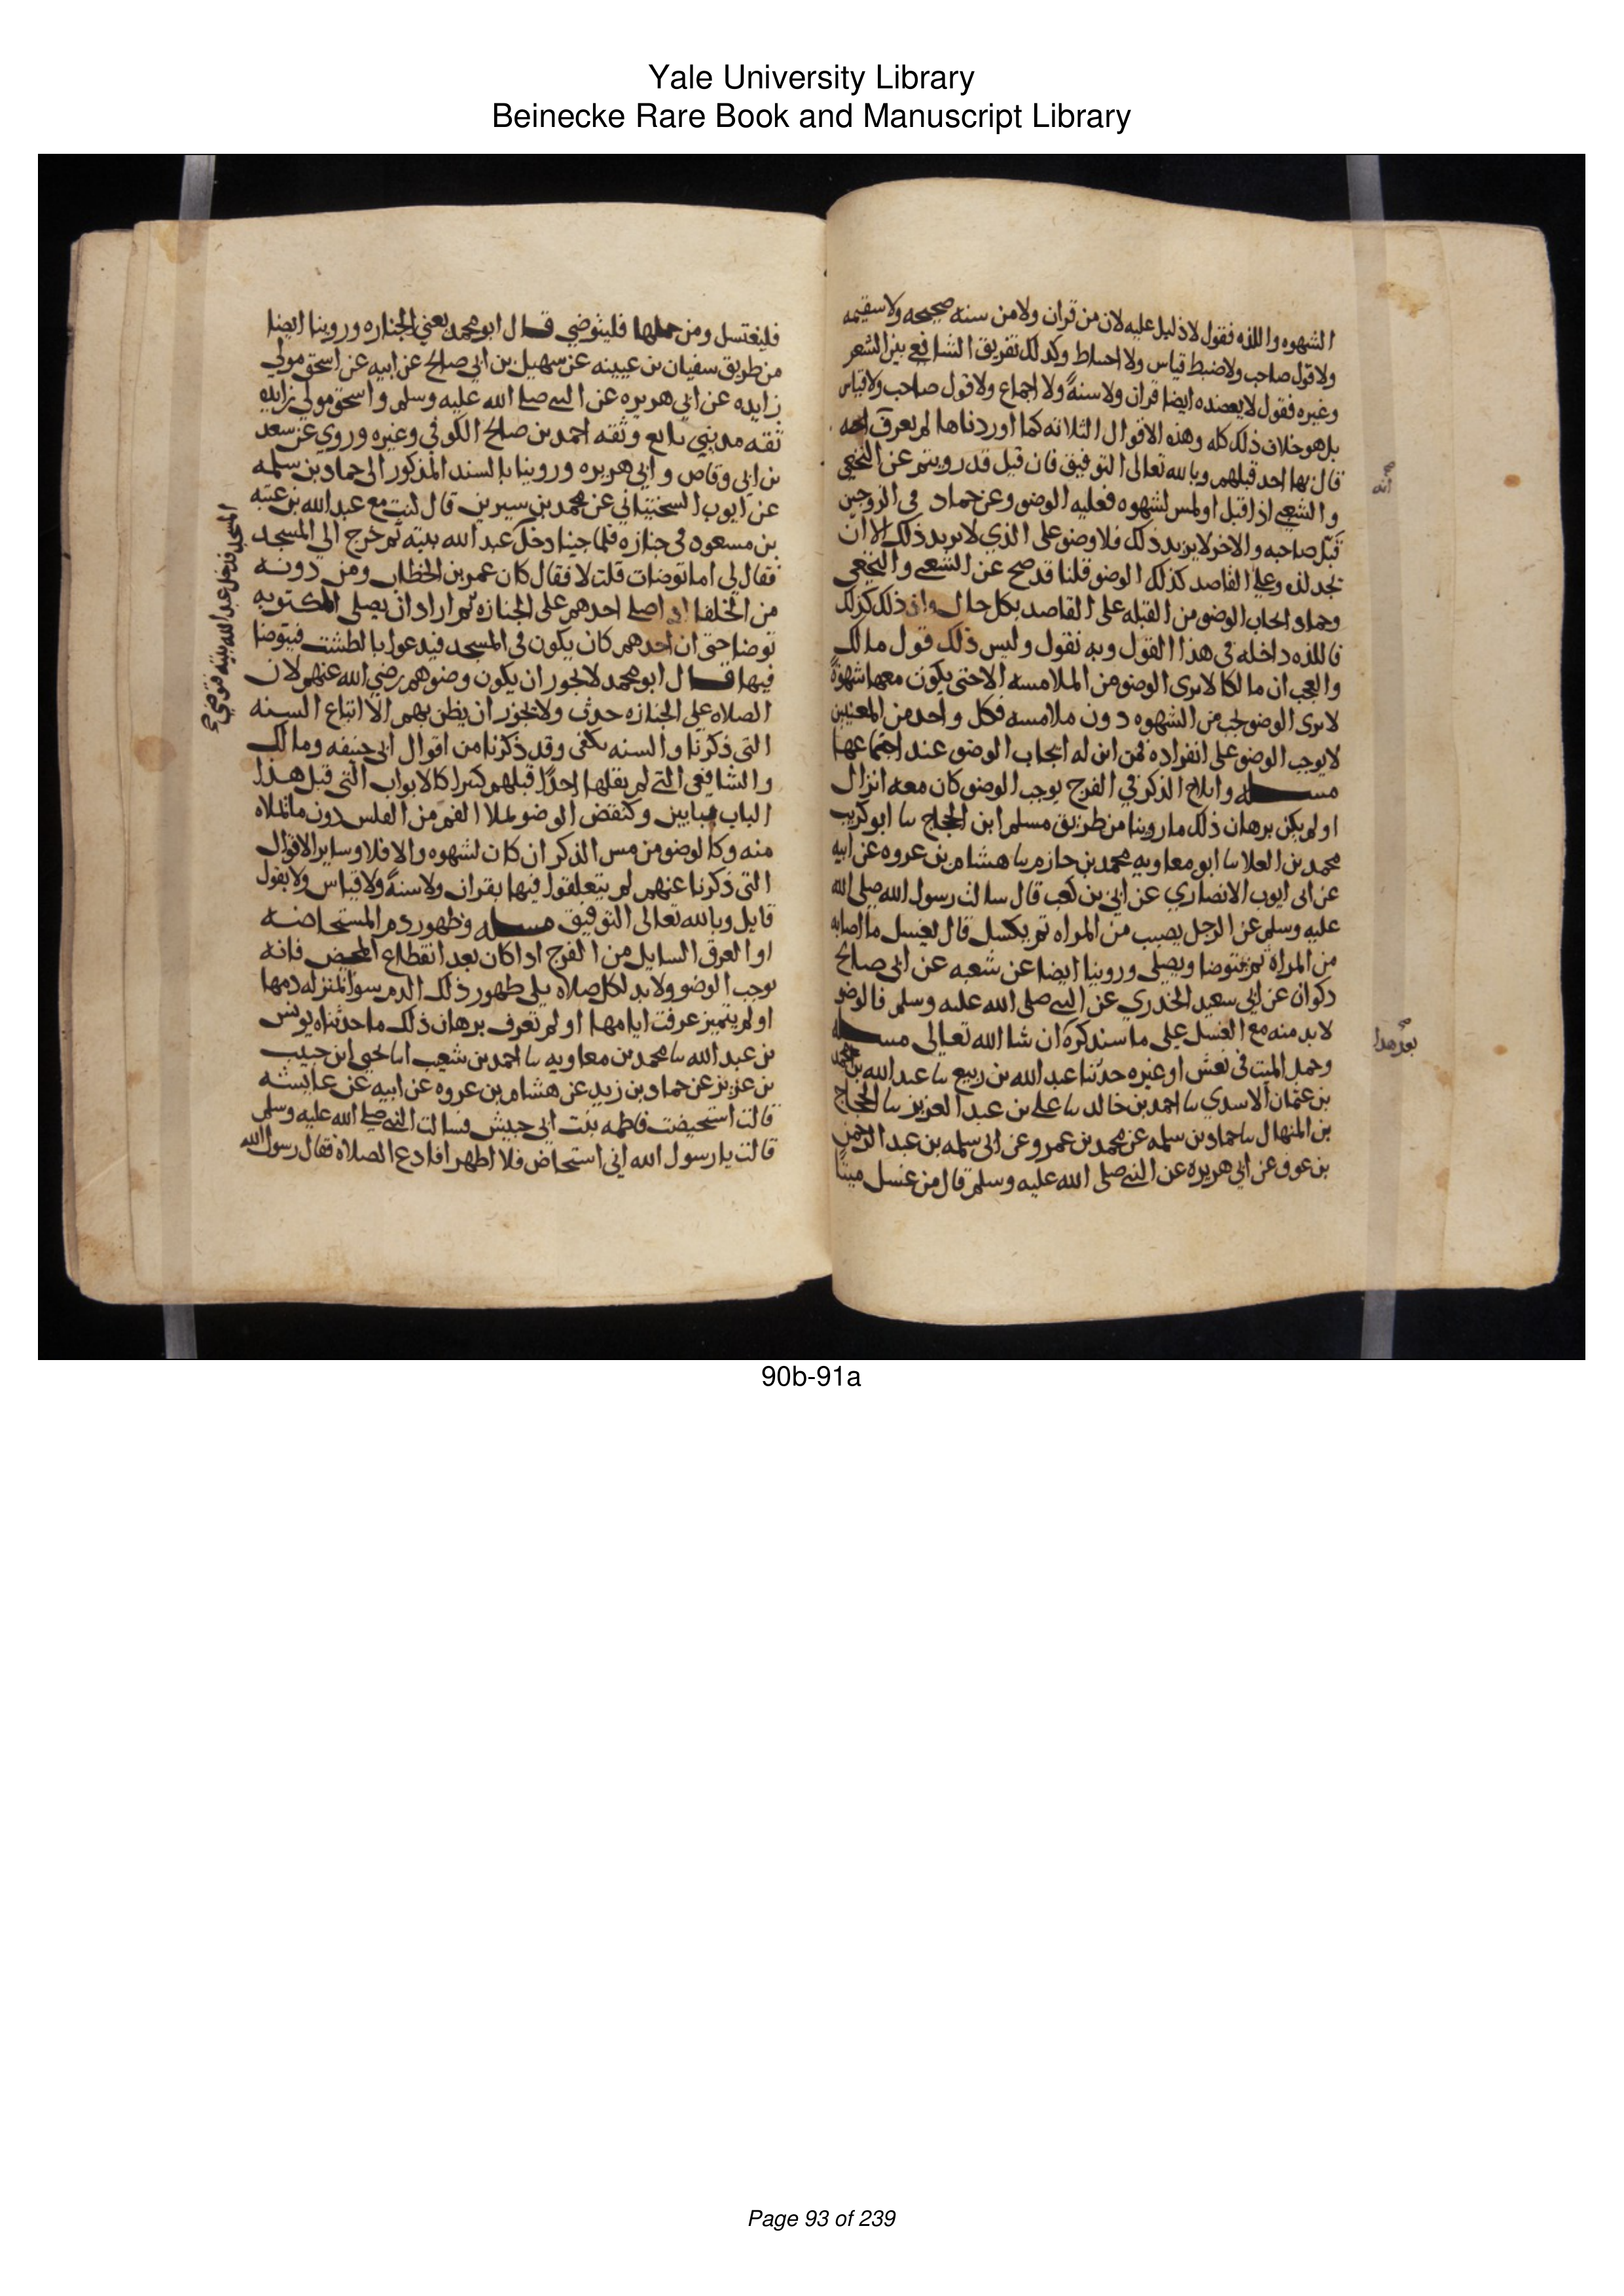 Yale University Library
Beinecke Rare Book and Manuscript Library
الشهوه واللذه فقول لا دليل عليه لا من قران ولا من سنه صحيحه ولا سقيمه
ولا قول صاحب ولا ضبط قياس ولا احتياط وكذلك تفريق الشافعي بين الشعر
وغيره فقول لا يعضده ايضا قران ولا سنةً ولا اجماع ولا قول صاحب ولا قياس
بل هو خلاف ذلك كله وهذه الاقوال الثلاثه كما اوردناها لم يعرف
انه
قال بها احد قبلهم وبالله تعالى التوفيق فان قيل قد رويتم عن النخعي
والشعبي اذا قبل او لمس لشهوه فعليه الوضو وعن حماد في الزوجين
قبّل صاحبه والاخر لا يريد ذلك فلا وضو على الذي لا يريد ذلك الا ان
يجد لذه وعلى القاصد لذلك الوضو قلنا قد صح عن الشعبي والنخعي
وحماد ايجاب الوضو من القبله على القاصد بكل حال واذ ذلك كذلك
فاللذه داخله في هذا القول وبه نقول وليس ذلك قول مالك
والعجب ان مالكا لا يرى الوضو من الملامسه الا حتى يكون معها شهوةً
لا يرى الوضو يجب من الشهوه دون ملامسه فكل واحد من المعنيين
لا يوجب الوضو على انفراده فمن اين له ايجاب الوضو عند اجتماعهما
مسله وايلاج الذكر في الفرج يوجب الوضو كان معه انزال
او لم يكن برهان ذلك ما روينا من طريق مسلم ابن الحجاج سا ابو كريب
محمد بن العلا سا ابو معاويه محمد بن حازم سا هشام بن عروه عن ابيه
عن ابى ايوب الانصاري عن ابي بن كعب قال سالت رسول الله صلى الله
عليه وسلم عن الرجل يصيب من المراه ثم يكسل قال يغسل ما اصابه
من المراة ثم يتوضا ويصلى وروينا ايضا عن شعبه عن ابى صالح
ذكوان عن ابي سعيد الخدري عن النبي صلى الله عليه وسلم فالوضو
لا بد منه مع الغسل على ما سنذكره ان شا الله تعالى مسله
بعد هذا
وحمل الميت في نعش او غيره حدثنا عبد الله بن ربيع سا عبد الله بن محمد
بن عثمان الاسدي سا احمد بن خالد سا على بن عبد العزيز سا الحجاج
بن المنهال سا حماد بن سلمه عن محمد بن عمرو عن ابى سلمه بن عبد الرحمن
بن عوف عن ابي هريره عن النبي صلى الله عليه وسلم قال من غسل ميتا
فليغتسل ومن حملها فليتوضي قال ابو محمد يعني الجنازه وروينا ايضا
من طريق سفيان بن عيينه عن سهيل بن ابي صالح عن ابيه عن اسحق مولى
زايده عن ابي هريره عن النبي صلى الله عليه وسلم واسحق مولى زايده
ثقه مديني تابع وثقه احمد بن صالح الكوفي وغيره وروي عن سعد
بن ابي وقاص وابي هريره وروينا بالسند المذكور الى حماد بن سلمه
عن ايوب السختياني عن محمد بن سيرين قال كنت مع عبد الله بن عتبه
بن مسعود في جنازه فلما جينا دخل عبد الله بيته ثم خرج الى المسجد
المسجد فدخل عبد الله بيته فتوضى
فقال لي اما توضات قلت لا فقال كان عمر بن الخطاب ومن دونه
من الخلفا اذا صلى احدهم على الجنازه ثم اراد ان يصلي المكتوبه
توضا حتى ان احدهم كان يكون في المسجد فيدعوا بالطشت فيتوضا
فيها قال ابو محمد لا يجوز ان يكون وضوهم رضي الله عنهم لان
الصلاه على الجنازه حدث ولا يجوز ان يظن بهم الا اتباع السنه
التي ذكرنا والسنه تكفى وقد ذكرنا من اقوال ابى حنيفه ومالك
والشافعي التي لم يقلها احدًا قبلهم كثيرا كالابواب التى قبل هذا
الباب ببابين وكنقض الوضو بملا الفم من القلس دون ما لا يملاه
منه وكالوضو من مس الذكر ان كان لشهوه والا فلا وساير الاقوال
التى ذكرنا عنهم لم يتعلقوا فيها بقران ولا سنةً ولا قياس ولا بقول
قايل وبالله تعالى التوفيق مسله وظهور دم المستحاضه
او العرق السايل من الفرج اذا كان بعد انقطاع المحيض فانه
يوجب الوضو ولا بد لكل صلاه يلى ظهور ذلك الدم سوا تميز له دمها
او لم يتميز عرفت ايامها او لم تعرف برهان ذلك ما حدثناه يونس
بن عبد الله سا محمد بن معاويه سا احمد بن شعيب انا يحيى ابن حبيب
بن عربي عن حماد بن زيد عن هشام بن عروه عن ابيه عن عايشه
قالت استحيضت فاطمه بنت ابي حبيش فسالت النبي صلى الله عليه وسلم
قالت يا رسول الله اني استحاض فلا اطهر افادع الصلاه فقال رسول الله
90b-91a
Page 93 of 239